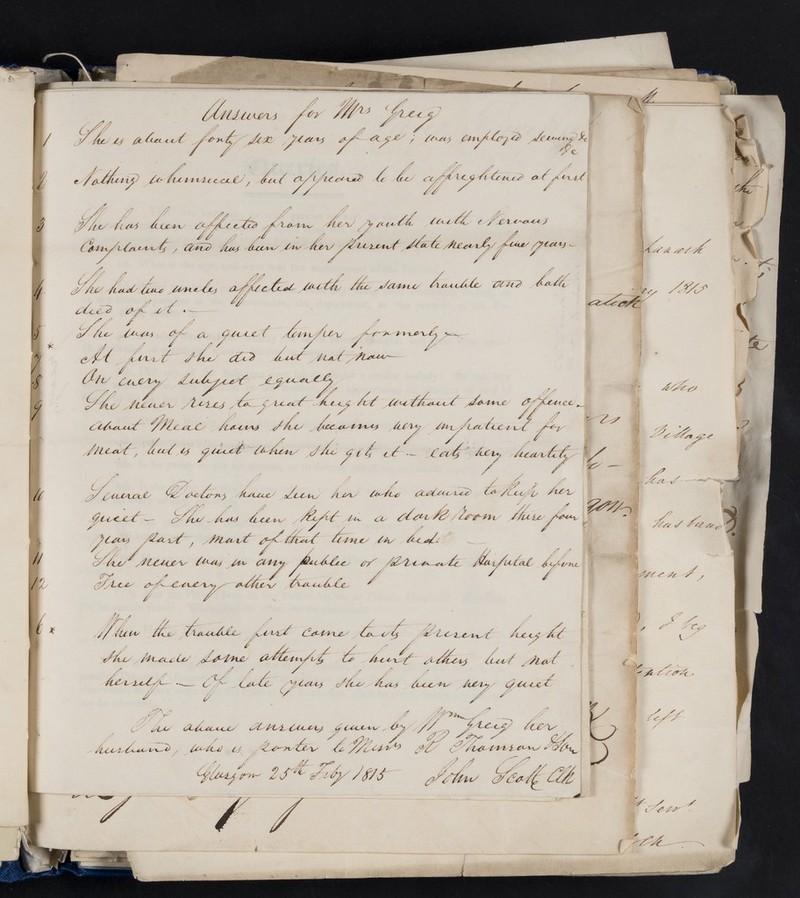 Answers for Mrs Greig
1 She is about forty six years of age; was employed sewing &c
2 Nothing whimsical, but appeared to be affrightened at first
3 She has been affected from her youth with Nervous
Complaints, and has been in her present state nearly five years —
4 She had two uncles affected with the same trouble and both
died of it. —
5 She was of a quiet temper formerly —
7 * At first she did but not now —
8 On every subject equally
9 She never rises to great height without some offence —
about Meal hours she becomes very impatient for
meat, but is quiet when she gets it — eats very heartily
10 Several Doctors have seen her who advised to keep her
quiet — She has been kept in a dark room these four
years past, most of that time in bed
11 She never was in any public or private Hospital before
12 Free of every other trouble
6 * When the trouble first came to its present height
she made some attempts to hurt others but not
herself — Of late years she has been very quiet
The above answers given by Wm Greig her
husband, who is porter to Messrs R Thomson &
Glasgow 25th Feby 1815 John Scott Clk
Lanark
1815
who
Village
has
husband
ment,
, I beg
left